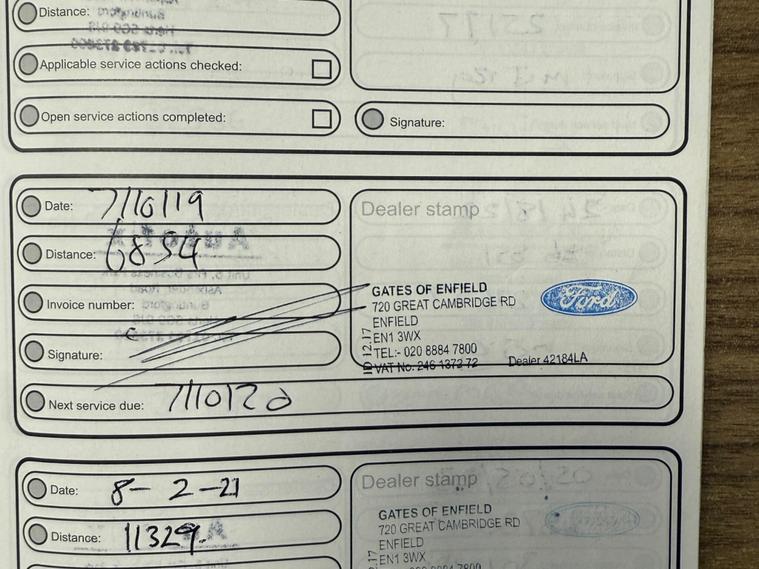 Distance:
Applicable service actions checked:
Open service actions completed:
Signature:
Date: 7/10/19
Dealer stamp
Distance: 6834
Invoice number:
GATES OF ENFIELD
720 GREAT CAMBRIDGE RD
ENFIELD
EN1 3WX
TEL:- 020 8884 7800
VAT No. 246 1372 72
Dealer 42184LA
12.17
Ford
Signature:
Next service due: 7/10/20
Date: 8-2-21
Dealer stamp
Distance: 11329
GATES OF ENFIELD
720 GREAT CAMBRIDGE RD
ENFIELD
EN1 3WX